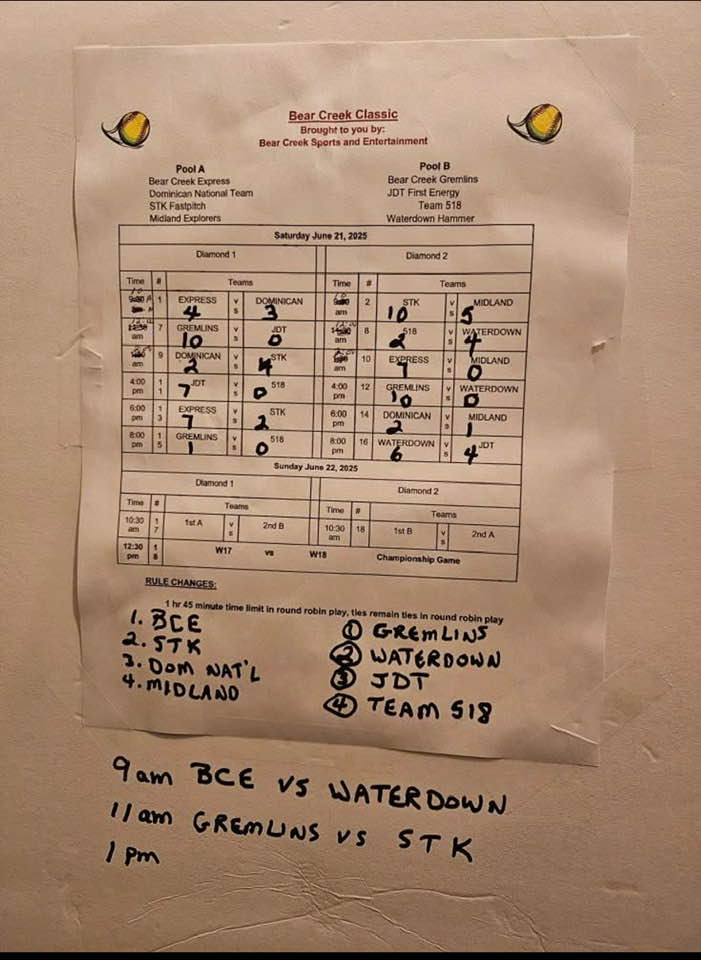 Bear Creek Classic
Brought to you by:
Bear Creek Sports and Entertainment
Pool A
Bear Creek Express
Dominican National Team
STK Fastpitch
Midland Explorers
Pool B
Bear Creek Gremlins
JDT First Energy
Team 518
Waterdown Hammer
Saturday June 21, 2025
Diamond 1 Diamond 2
Time # Teams Time # Teams
1 EXPRESS 4 vs DOMINICAN 3 am 2 STK 10 vs MIDLAND 5
am 7 GREMLINS 10 vs JDT 0 am 8 518 2 vs WATERDOWN 4
am 9 DOMINICAN 2 vs STK 4 am 10 EXPRESS 7 vs MIDLAND 0
4:00 pm 11 JDT 7 vs 518 0 4:00 pm 12 GREMLINS 10 vs WATERDOWN 0
6:00 pm 13 EXPRESS 7 vs STK 2 6:00 pm 14 DOMINICAN 2 vs MIDLAND 1
8:00 pm 15 GREMLINS 1 vs 518 0 8:00 pm 16 WATERDOWN 6 vs JDT 4
Sunday June 22, 2025
Diamond 1 Diamond 2
Time # Teams Time # Teams
10:30 am 17 1st A vs 2nd B 10:30 am 18 1st B vs 2nd A
12:30 pm W17 vs W18 Championship Game
RULE CHANGES:
1 hr 45 minute time limit in round robin play, ties remain ties in round robin play
1. BCE
2. STK
3. DOM NAT'L
4. MIDLAND
1 GREMLINS
2 WATERDOWN
3 JDT
4 TEAM 518
9am BCE VS WATERDOWN
11am GREMLINS VS STK
1pm